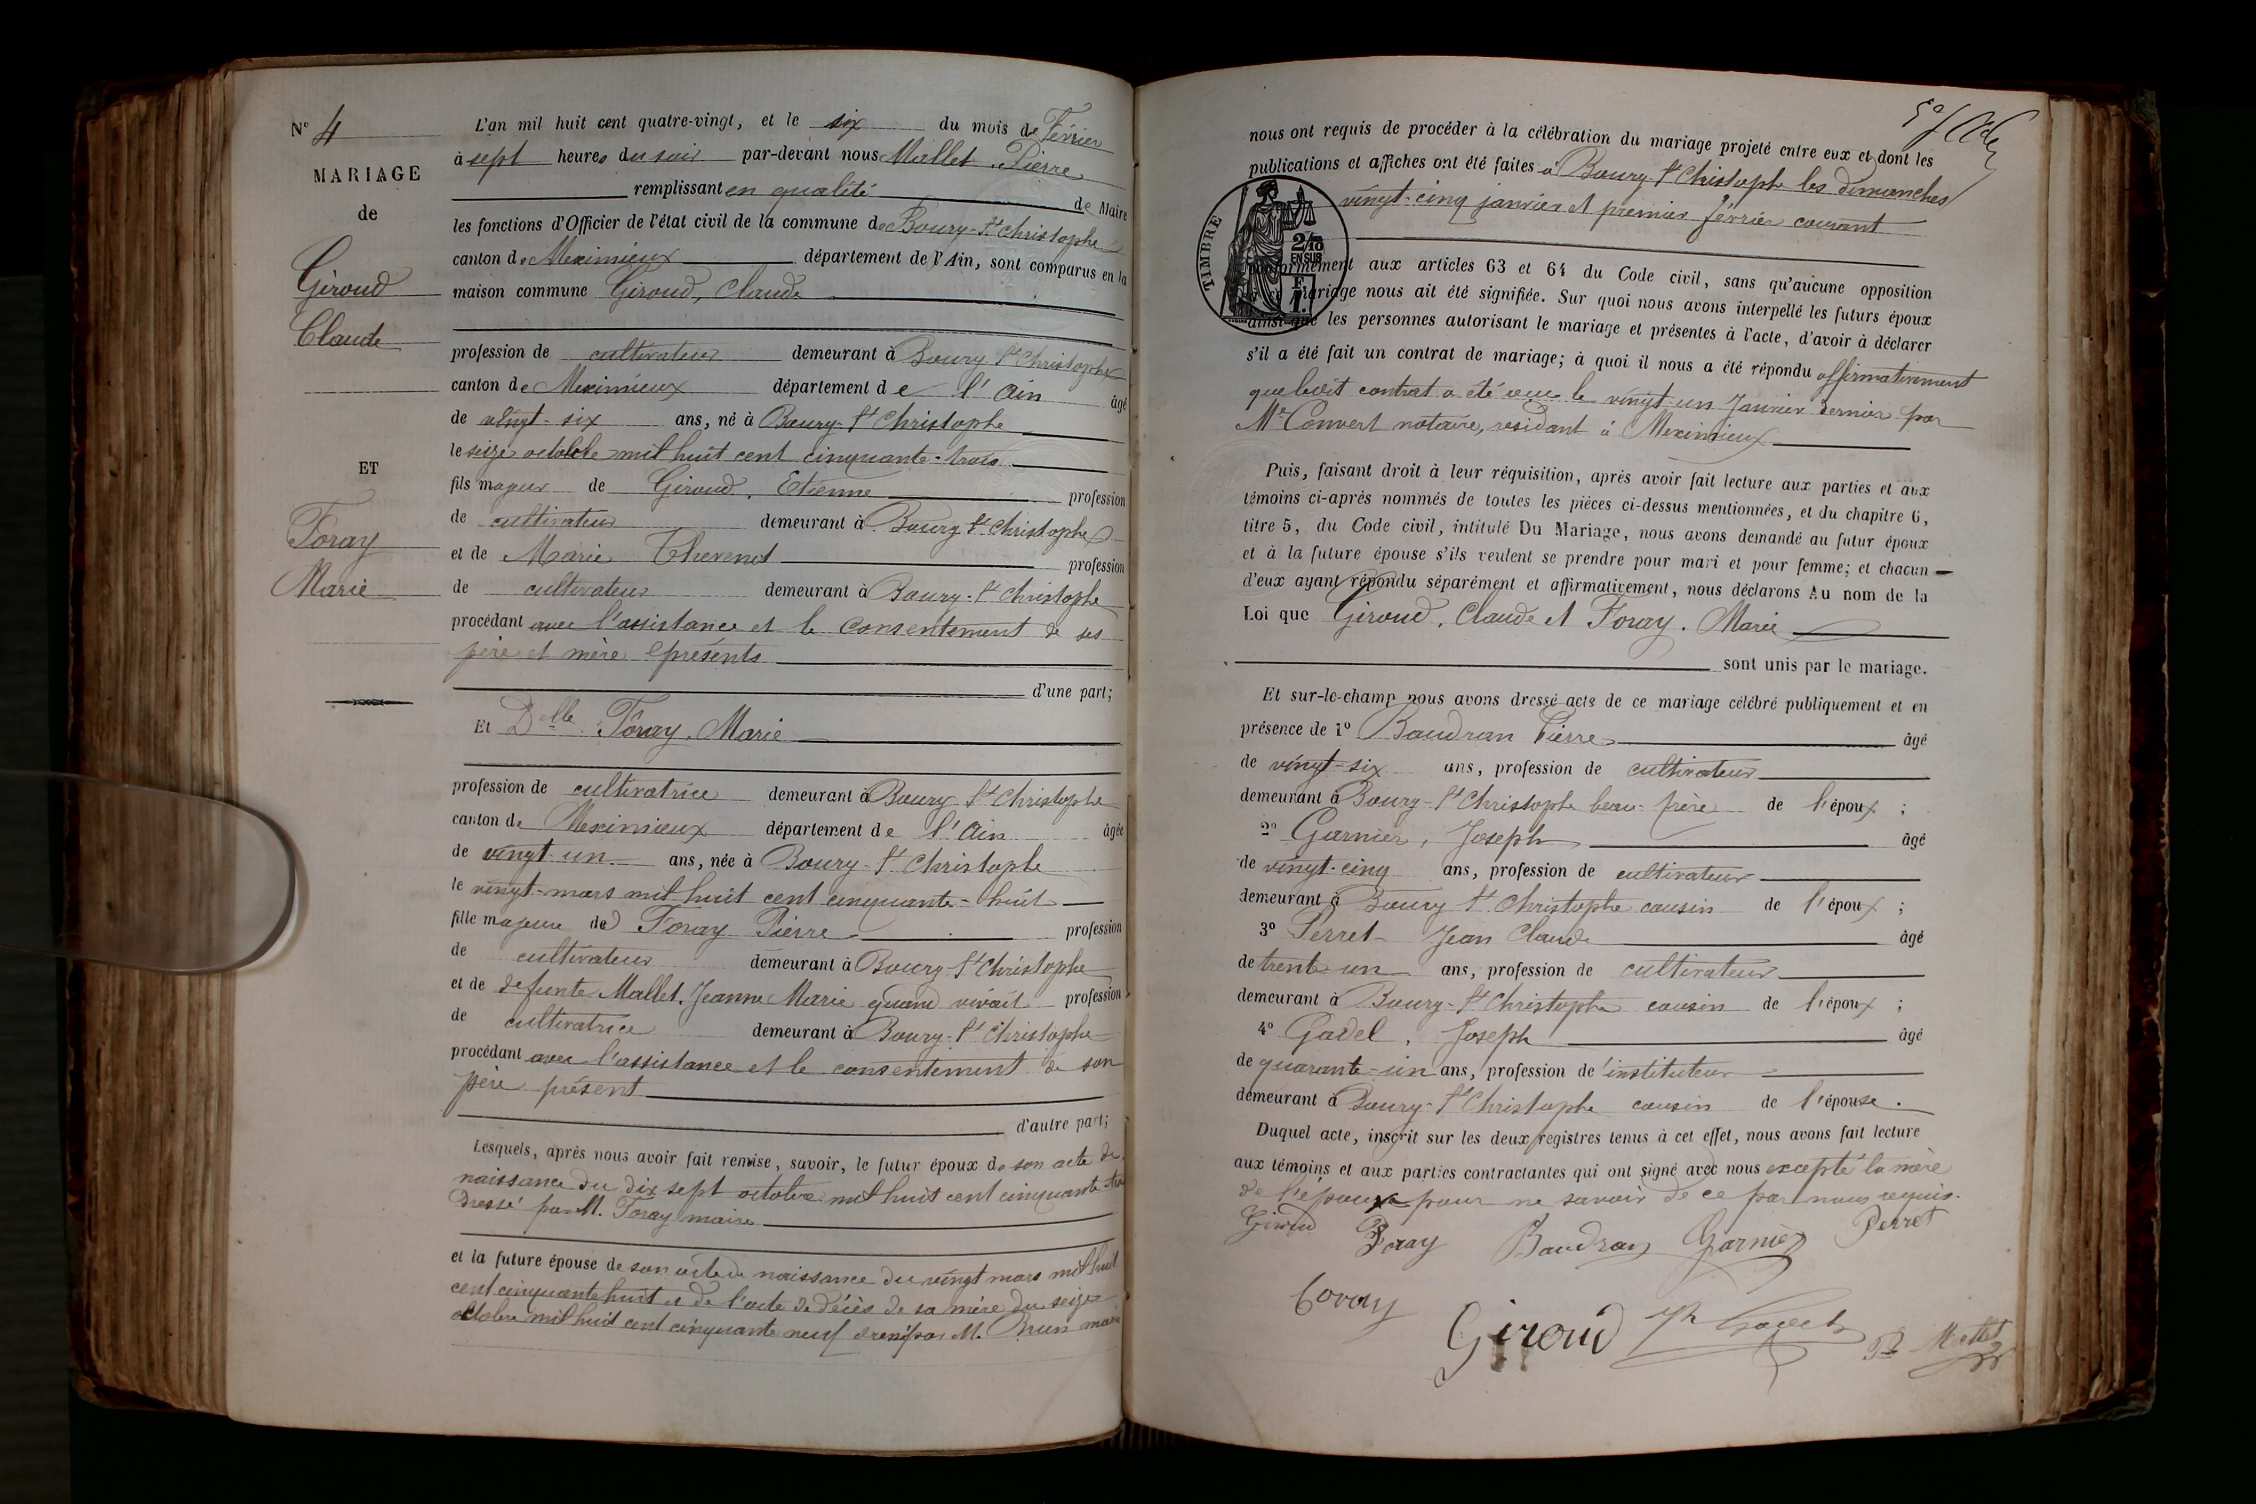 N° 4
MARIAGE
de
Giroud
Claude
ET
Foray
Marie
L'an mil huit cent quatre-vingt, et le six du mois de Février
à sept heures du soir par-devant nous Mallet, Pierre
remplissant en qualité de Maire
les fonctions d'Officier de l'état civil de la commune de Bourg-St Christophe
canton de Meximieux département de l'Ain, sont comparus en la
maison commune Giroud, Claude
profession de cultivateur demeurant à Bourg St Christophe
canton de Meximieux département de l'Ain âgé
de vingt-six ans, né à Bourg-St Christophe
le seize octobre mil huit cent cinquante-trois
fils majeur de Giroud, Etienne profession
de cultivateur demeurant à Bourg St Christophe
et de Marie Thevenet profession
de cultivateur demeurant à Bourg-St Christophe
procédant avec l'assistance et le consentement de ses
père et mère présents
d'une part;
Et Delle Foray, Marie
profession de cultivatrice demeurant à Bourg St Christophe
canton de Meximieux département de l'Ain âgée
de vingt-un ans, née à Bourg-St Christophe
le vingt-mars mil huit cent cinquante-huit
fille majeure de Foray Pierre profession
de cultivateur demeurant à Bourg-St Christophe
et de defunte Mallet, Jeanne Marie quand vivait profession
de cultivatrice demeurant à Bourg-St Christophe
procédant avec l'assistance et le consentement de son
père présent
d'autre part;
Lesquels, après nous avoir fait remise, savoir, le futur époux de son acte de
naissance du dix sept octobre mil huit cent cinquante trois
dressé par M. Foray maire
et la future épouse de son acte de naissance du vingt mars mil huit
cent cinquante huit et de l'acte de décès de sa mère du seize
octobre mil huit cent cinquante neuf dressé par M. Brun maire
nous ont requis de procéder à la célébration du mariage projeté entre eux et dont les
publications et affiches ont été faites à Bourg St Christophe les dimanches
vingt-cinq janvier et premier février courant
TIMBRE
2/10
EN SUS
F.
1.
conformément aux articles 63 et 64 du Code civil, sans qu'aucune opposition
mariage nous ait été signifiée. Sur quoi nous avons interpellé les futurs époux
ainsi que les personnes autorisant le mariage et présentes à l'acte, d'avoir à déclarer
s'il a été fait un contrat de mariage; à quoi il nous a été répondu affirmativement
que ledit contrat a été reçu le vingt-un Janvier dernier par
Me Convert notaire, résidant à Meximieux
Puis, faisant droit à leur réquisition, après avoir fait lecture aux parties et aux
témoins ci-après nommés de toutes les pièces ci-dessus mentionnées, et du chapitre 6,
titre 5, du Code civil, intitulé Du Mariage, nous avons demandé au futur époux
et à la future épouse s'ils veulent se prendre pour mari et pour femme; et chacun
d'eux ayant répondu séparément et affirmativement, nous déclarons Au nom de la
Loi que Giroud, Claude et Foray, Marie
sont unis par le mariage.
Et sur-le-champ nous avons dressé acte de ce mariage célébré publiquement et en
présence de 1° Baudran Pierre âgé
de vingt-six ans, profession de cultivateur
demeurant à Bourg-St Christophe beau-frère de l'époux ;
2° Garnier, Joseph âgé
de vingt-cinq ans, profession de cultivateur
demeurant à Bourg St Christophe cousin de l'époux ;
3° Perret Jean Claude âgé
de trente un ans, profession de cultivateur
demeurant à Bourg-St Christophe cousin de l'époux ;
4° Gadel, Joseph âgé
de quarante-un ans, profession de l'instituteur
demeurant à Bourg-St Christophe cousin de l'épouse.
Duquel acte, inscrit sur les deux registres tenus à cet effet, nous avons fait lecture
aux témoins et aux parties contractantes qui ont signé avec nous excepté la mère
de l'époux pour ne savoir de ce par nous requis.
Giroud Foray Baudran Garnier Perret
Foray
Giroud Jh Gadel Pre Mallet